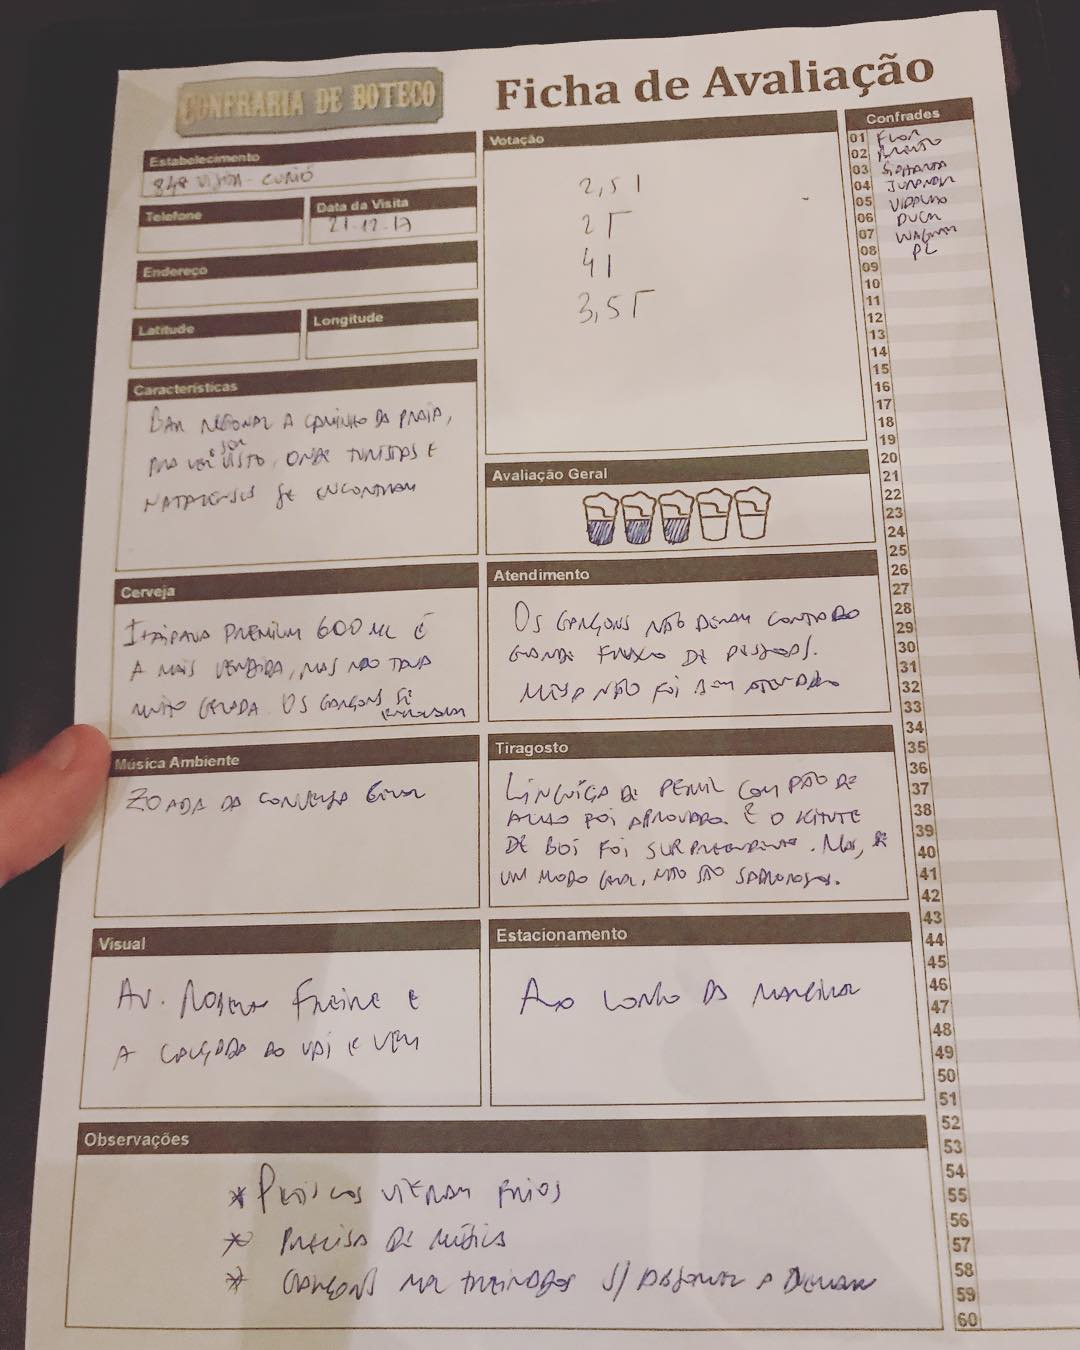 CONFRARIA DE BOTECO
Ficha de Avaliação
Estabelecimento
Telefone
Data da Visita
21.12.17
Endereço
Latitude
Longitude
Características
BAR REGIONAL A CAMINHO DA PRAIA,
PRA VER E SER VISTO, ONDE TURISTAS E
NATALENSES SE ENCONTRAM
Cerveja
ITAIPAVA PREMIUM 600 ML É
A MAIS VENDIDA, MAS NÃO TAVA
MUITO GELADA. OS GARÇONS SE
Música Ambiente
ZOADA DA CONVERSA GERAL
Visual
AV. ROBERTO FREIRE E
A CALÇADA DO VAI E VEM
Votação
2,5 |
2 Γ
4 |
3,5 Γ
Avaliação Geral
Atendimento
OS GARÇONS NÃO DERAM CONTA DO
GRANDE FLUXO DE PESSOAS.
MESA NÃO FOI BEM ATENDIDA
Tiragosto
LINGUIÇA DE PERNIL COM PÃO DE
ALHO FOI APROVADO. E O
DE BOI FOI SURPREENDENTE. MAS, DE
UM MODO GERAL, NÃO SÃO SABOROSOS.
Estacionamento
AO LONGO DA MARGINAL
Observações
* PETISCOS VIERAM FRIOS
* PRECISA DE MÚSICA
* GARÇONS MAL TREINADOS S/
Confrades
01 FLOR
02
03
04 JUNINHO
05
06 DUCA
07 WAGNER
08 PC
09
10
11
12
13
14
15
16
17
18
19
20
21
22
23
24
25
26
27
28
29
30
31
32
33
34
35
36
37
38
39
40
41
42
43
44
45
46
47
48
49
50
51
52
53
54
55
56
57
58
59
60